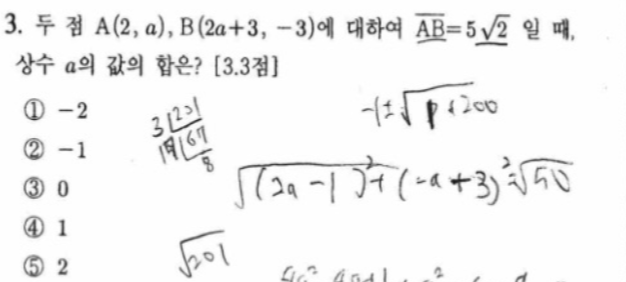 3. 두 점 A(2, a), B(2a+3, -3)에 대하여 AB=5√2 일 때,
상수 a의 값의 합은? [3.3점]
① -2
② -1
③ 0
④ 1
⑤ 2
-1±√1+200
3 201
67
8
√(2a-1)²+(-a+3)²=√50
√201